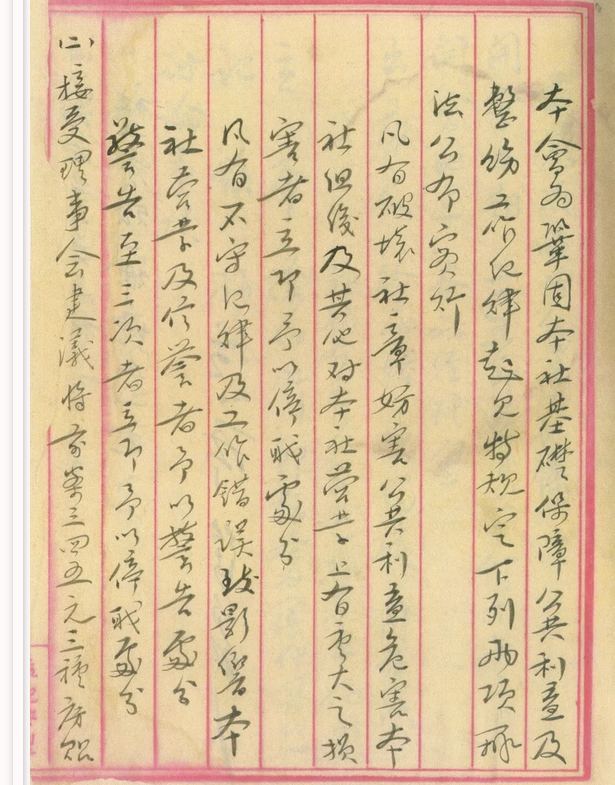 本會為鞏固本社基礎保障公共利益及
整飭工作紀律起見特規定下列兩項辦
法公布實行
凡有破壞社章妨害公共利益危害本
社但後及其他对本社营業上有重大之損
害者立即予以停职處分
凡有不守紀律及工作錯误致影響本
社营業及信誉者予以警告處分
警告至三次者立即予以停职處分
(二)接受理事会建議将前举三四五元三種房贴